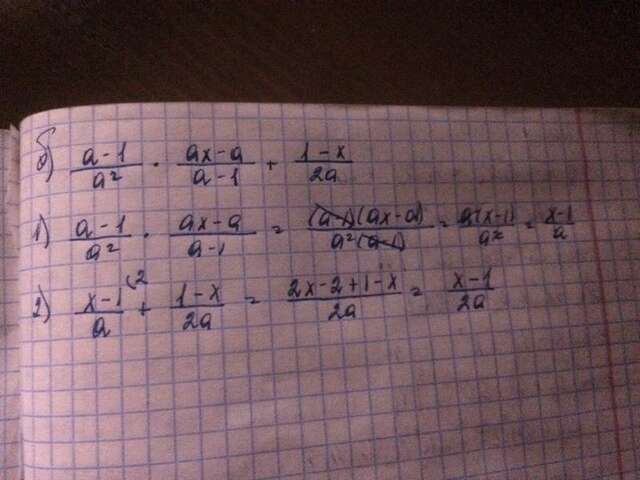 б) (a-1)/a² · (ax-a)/(a-1) + (1-x)/2a
1) (a-1)/a² · (ax-a)/(a-1) = (a-1)(ax-a)/a²(a-1) = a(x-1)/a² = (x-1)/a
2) (x-1)/a (2 + (1-x)/2a = (2x-2+1-x)/2a = (x-1)/2a